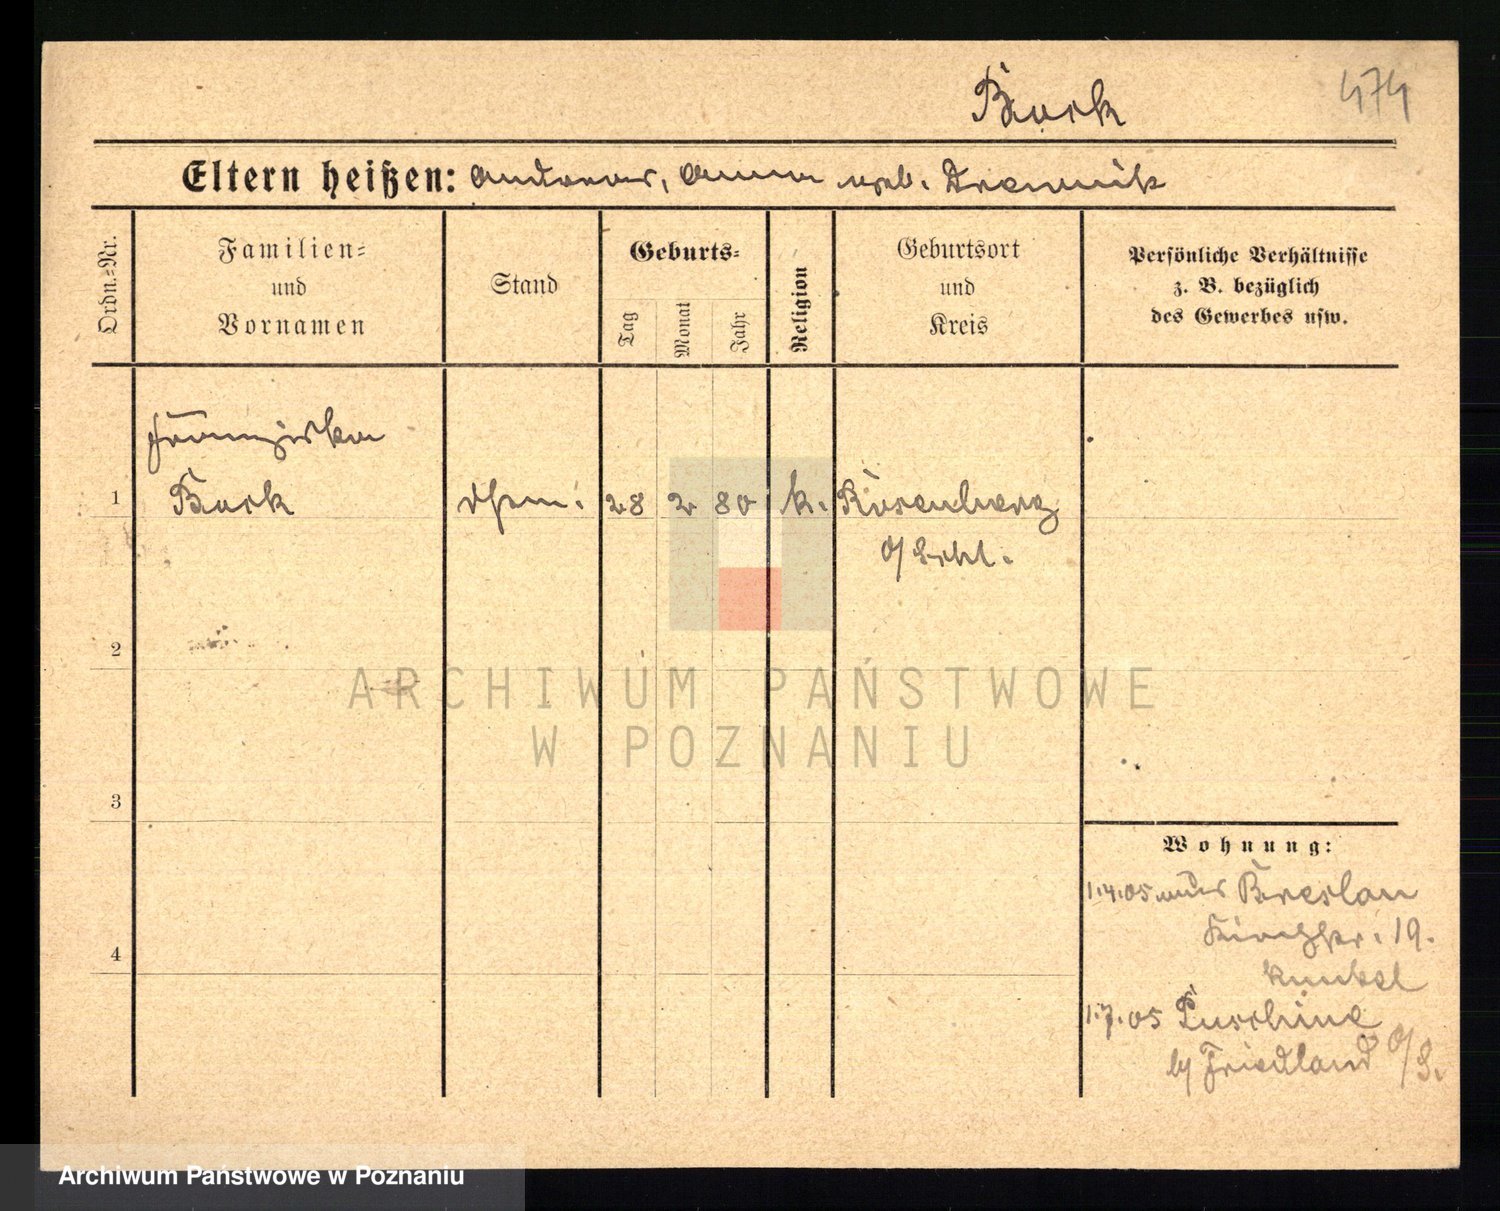 Bock
474
Eltern heißen: Andreas, Anna geb.
Ordn.-Nr.
Familien-
und
Vornamen
Stand
Geburts-
Tag
Monat
Jahr
Religion
Geburtsort
und
Kreis
Persönliche Verhältnisse
z. B. bezüglich
des Gewerbes usw.
Franziska
1 Bock 28 2 80 k. Rosenberg
O/Schl.
2
ARCHIWUM PAŃSTWOWE
W POZNANIU
3
Wohnung:
1.4.05 Breslau
19.
4
Kunkel
1.7.05 Puschine
b/ Friedland O/S.
Archiwum Państwowe w Poznaniu